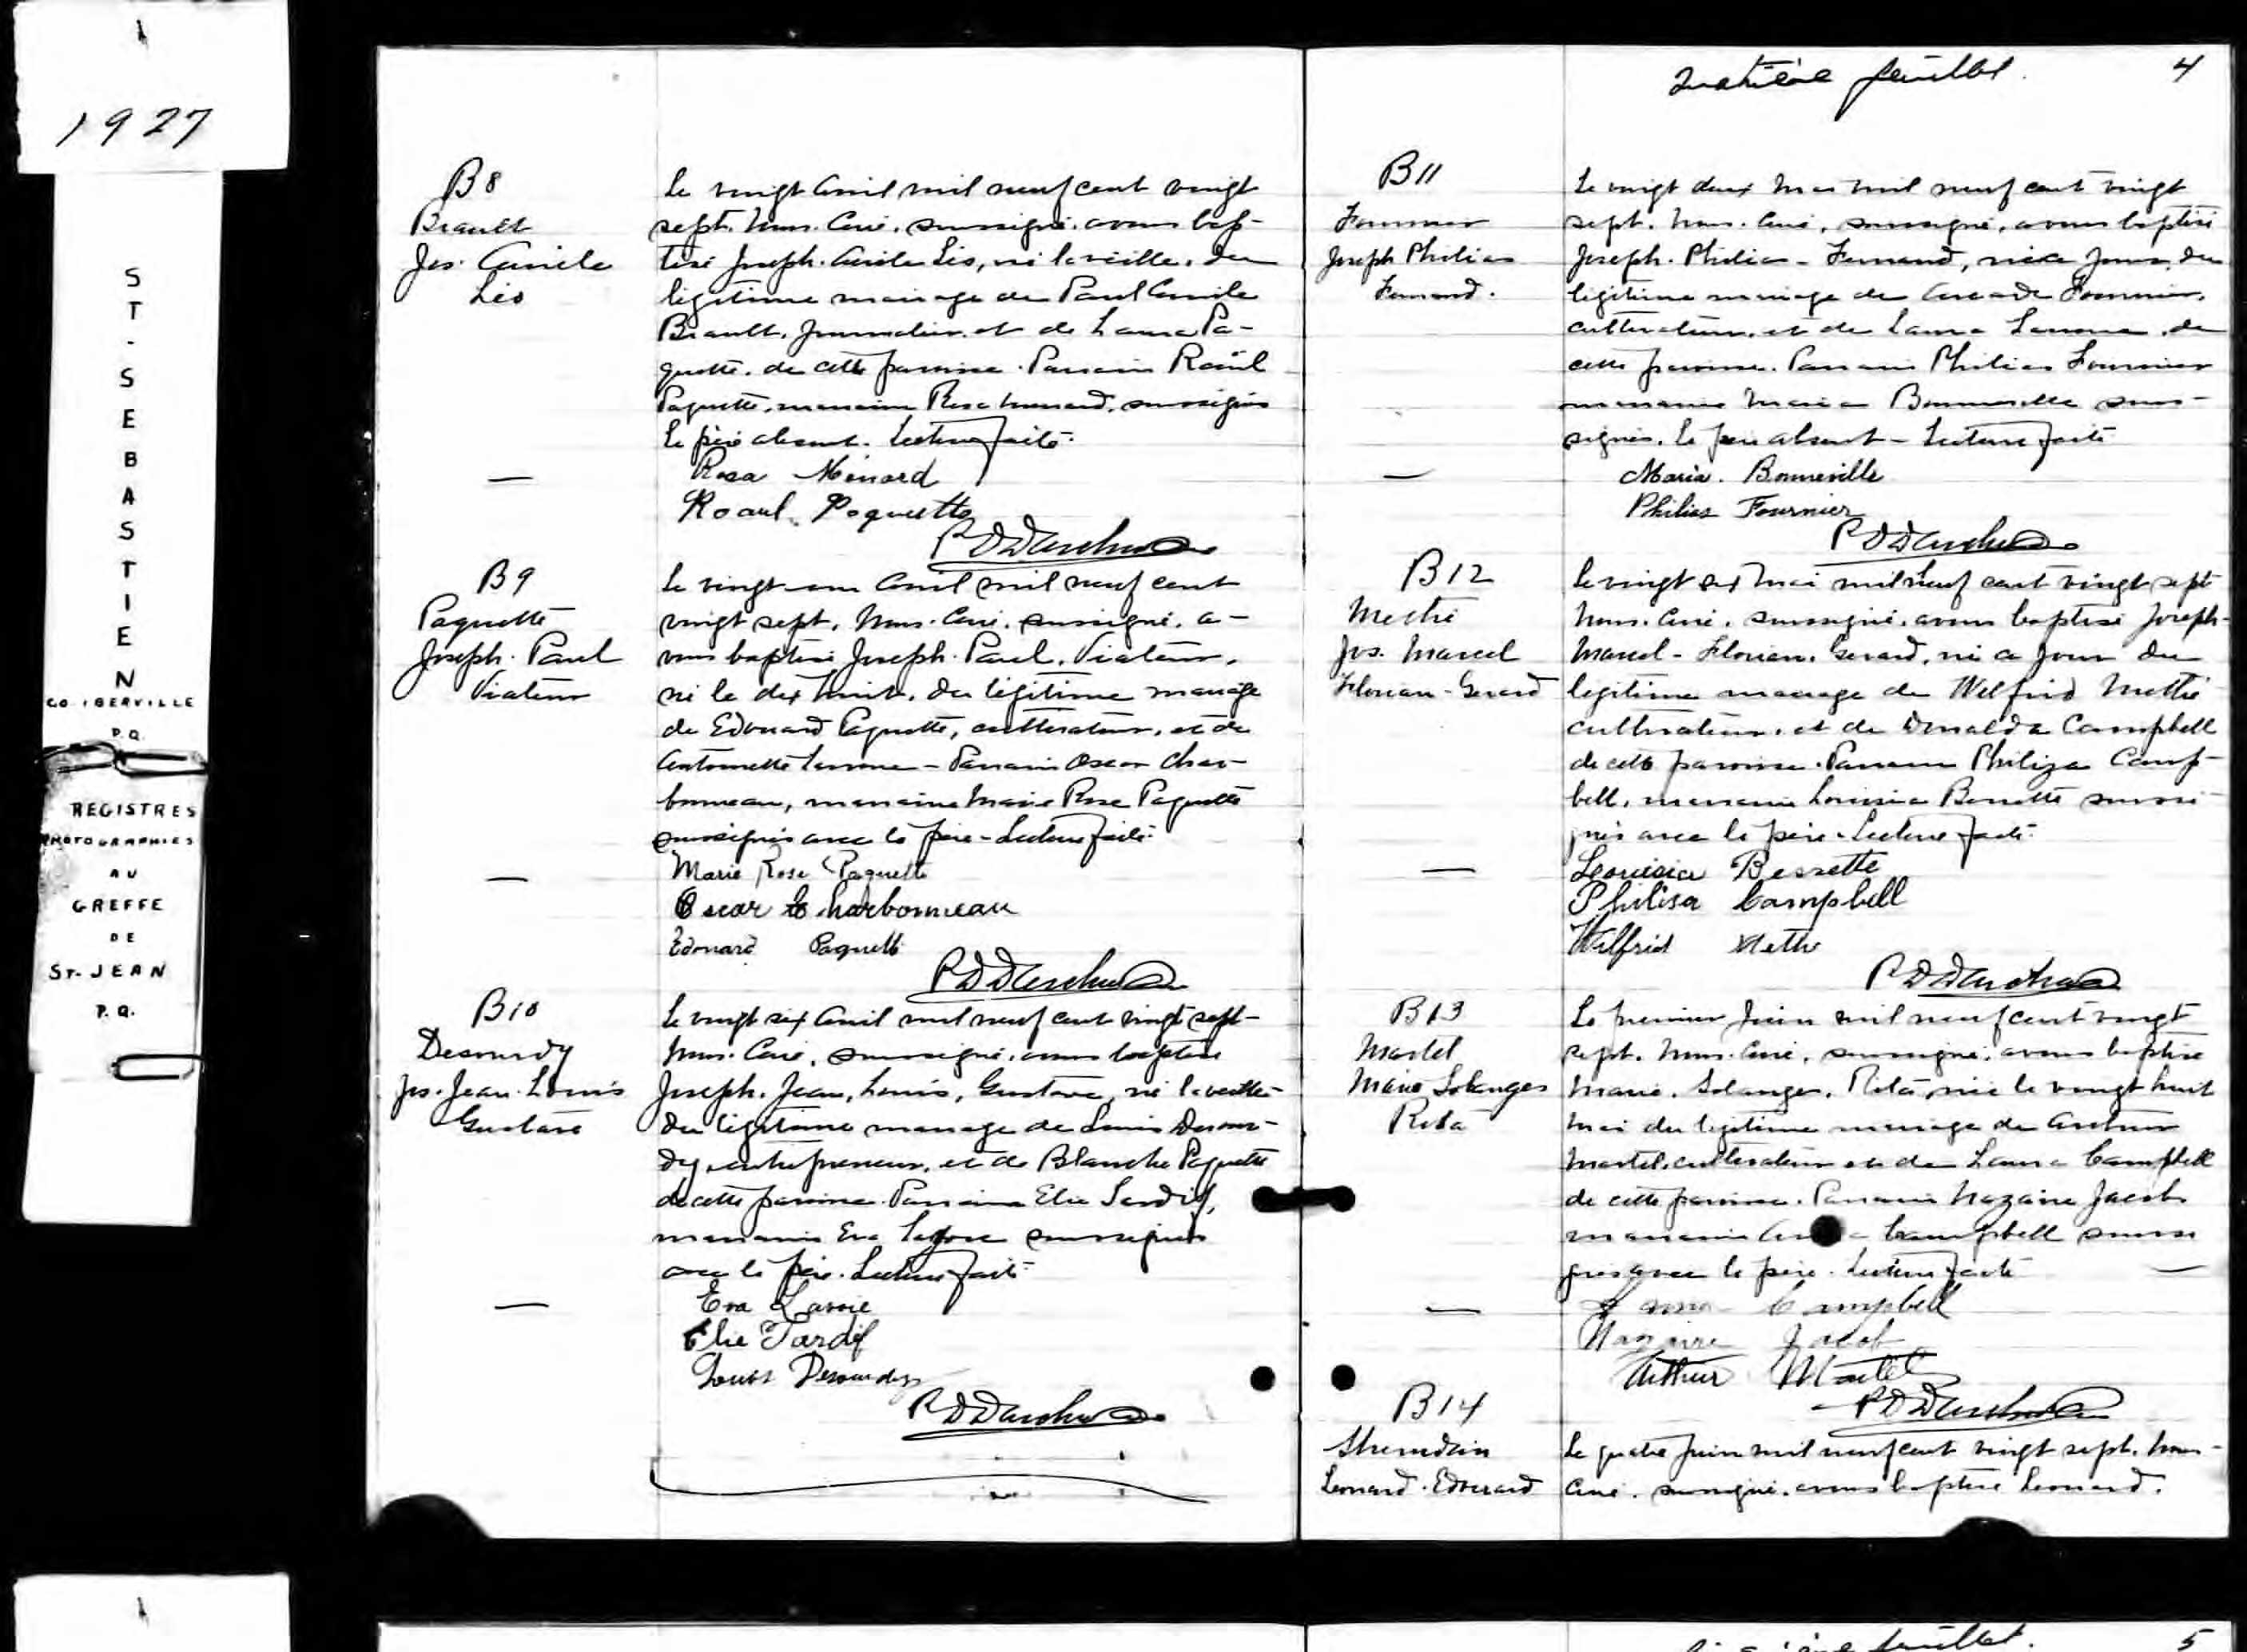 1927
ST-SEBASTIEN
CO. IBERVILLE
P.Q.
REGISTRES
PHOTOGRAPHIES
AU
GREFFE
DE
ST-JEAN
P.Q.
B8
Brault
Jos.
Léo
Le vingt Avril mil neuf cent vingt
sept. Nous. Curé, soussigné, avons bap-
tisé Joseph. Léo, né la veille, du
légitime mariage de Paul
Brault, journalier, et de Laura Pa-
quette, de cette paroisse. Parrain Raoul
Paquette, marraine Rosa Menard, soussignés
Le père absent. Lecture faite.
Rosa Ménard
Raoul Paquette
B9
Paquette
Joseph. Paul
Viateur
Le vingt-un Avril mil neuf cent
vingt sept, Nous. Curé, soussigné, a-
vons baptisé Joseph. Paul, Viateur,
né le dix huit, du légitime mariage
de Edouard Paquette, cultivateur, et de
Antoinette - Parrain Oscar Char-
bonneau, marraine Marie Rose Paquette
soussignés avec le père - Lecture faite.
Marie Rose Paquette
Oscar Charbonneau
Edouard Paquette
B10
Desourdy
Jos. Jean. Louis
Gustave
Le vingt six Avril mil neuf cent vingt sept-
Nous. Curé, soussigné, avons baptisé
Joseph. Jean, Louis, Gustave, né la veille
du légitime mariage de Louis Desour-
dy, entrepreneur, et de Blanche Paquette
de cette paroisse. Parrain Elie Tardif,
marraine Eva soussignés
avec le père. Lecture faite.
Eva Lavoie
Elie Tardif
Louis Desourdy
quatrième feuillet. 4
B11
Fournier
Joseph Philias
Fernand.
Le vingt deux Mai mil neuf cent vingt
sept. Nous. Curé, soussigné, avons baptisé
Joseph. Philias - Fernand, né ce jour, du
légitime mariage de Arcade Fournier,
cultivateur, et de Laura de
cette paroisse. Parrain Philias Fournier
marraine Maria Bonneville sous-
signés. Le père absent - Lecture faite
Maria. Bonneville
Philias Fournier
B12
Methé
Jos. Marcel
Florian-Gerard
Le vingt six Mai mil neuf cent vingt sept
Nous. Curé, soussigné, avons baptisé Joseph-
Marcel - Florian. Gerard, né ce jour du
légitime mariage de Wilfrid Methé
cultivateur, et de Donalda Campbell
de cette paroisse. Parrain Philiza Camp-
bell, marraine Louisia Bessette soussi-
gnés avec le père - Lecture faite.
Louisia Bessette
Philisa Campbell
Wilfrid Methé
B13
Martel
Marie Solanges
Rita
Le premier Juin mil neuf cent vingt
sept. Nous. Curé, soussigné, avons baptisé
Marie. Solanges. Rita, née le vingt huit
Mai du légitime mariage de Arthur
Martel, cultivateur et de Laura Campbell
de cette paroisse. Parrain Nazaire Jacob
marraine Campbell soussi
gnés avec le père. Lecture faite
Campbell
Nazaire Jacob
Arthur Martel
B14
Leonard. Edouard
Le quatre Juin mil neuf cent vingt sept. Nous-
Curé. soussigné, avons baptisé Leonard.
feuillet. 5